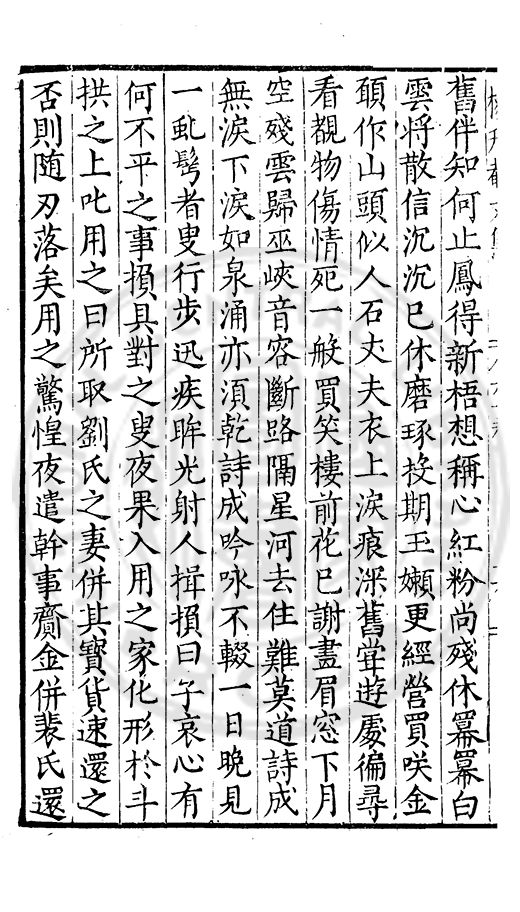 舊伴知何止鳳得新梧想稱心紅粉尚殘休羃羃白
雲將散信沉沉已休磨琢投期玉嬾更經營買咲金
頭作山頭似人石丈夫衣上淚痕深舊甞遊處徧尋
看覩物傷情死一般買笑樓前花已謝畫眉窓下月
空殘雲歸巫峽音容斷路隔星河去住難莫道詩成
無淚下淚如泉涌亦須乾詩成吟咏不輟一日晚見
一虬髯者叟行步迅疾眸光射人揖損曰子衷心有
何不平之事損具對之叟夜果入用之家化形於斗
拱之上叱用之曰所取劉氏之妻併其寳貨速還之
否則随刃落矣用之驚惶夜遣幹事齎金併裴氏還